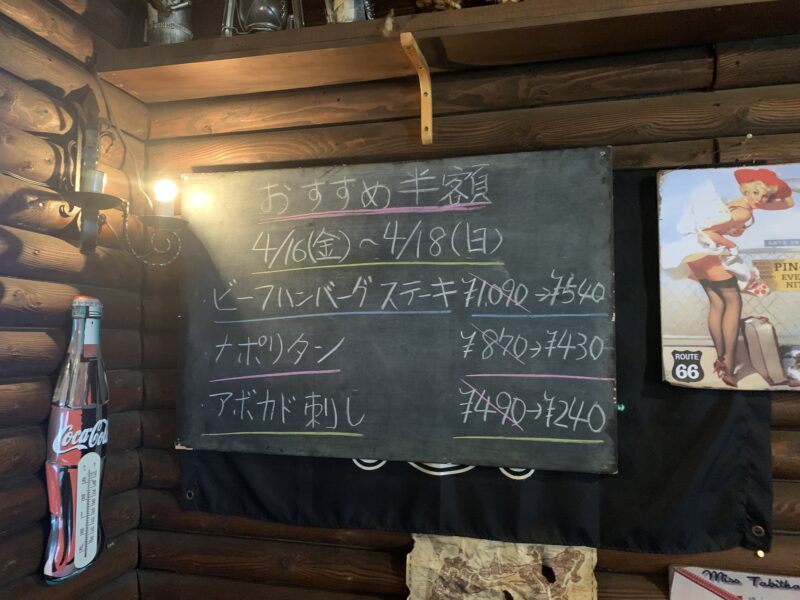 おすすめ半額
4/16(金)～4/18(日)
ビーフハンバーグステーキ ¥1,090→¥540
ナポリタン ¥870→¥430
アボカド刺し ¥490→¥240
Coca-Cola
ROUTE
66
Miss Tabitha